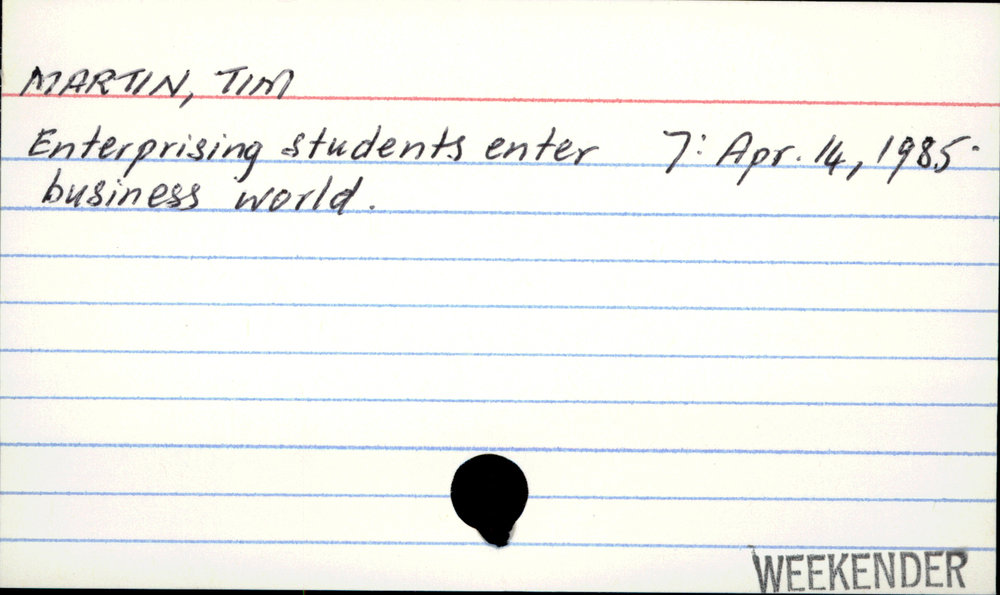 MARTIN, TIM
Enterprising students enter 7: Apr. 14, 1985.
business world.
WEEKENDER